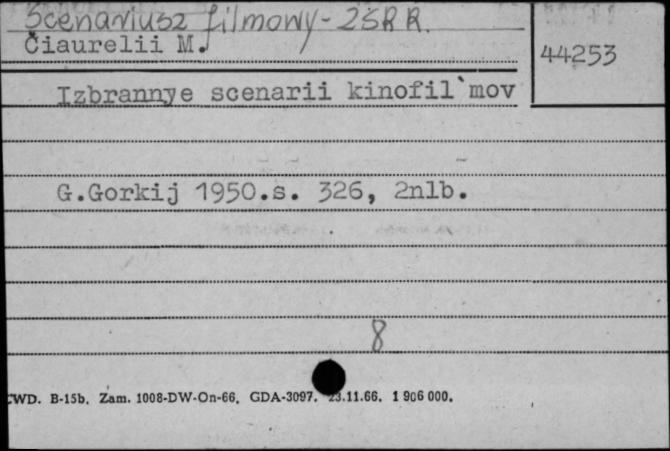 Scenariusz filmowy - ZSRR.
Čiaurelii M.
44253
Izbrannye scenarii kinofil`mov
G.Gorkij 1950.s. 326, 2nlb.
8
CWD. B-15b. Zam. 1008-DW-On-66. GDA-3097. 23.11.66. 1 906 000.